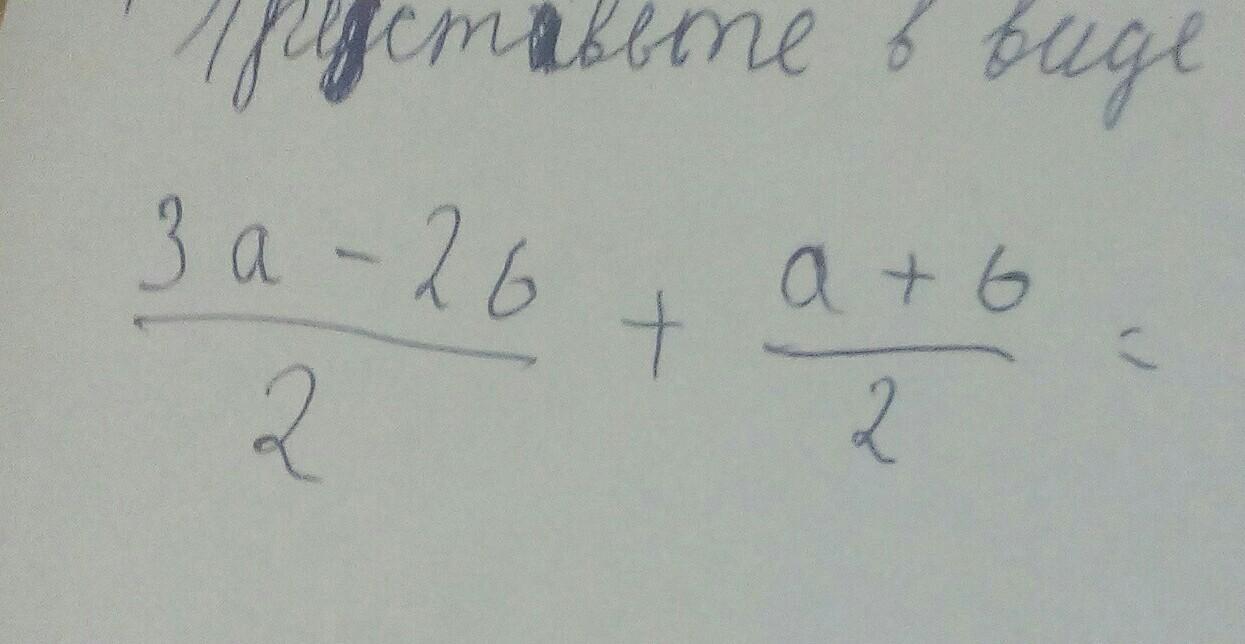 Представьте в виде
3a - 2b / 2 + a + b / 2 =